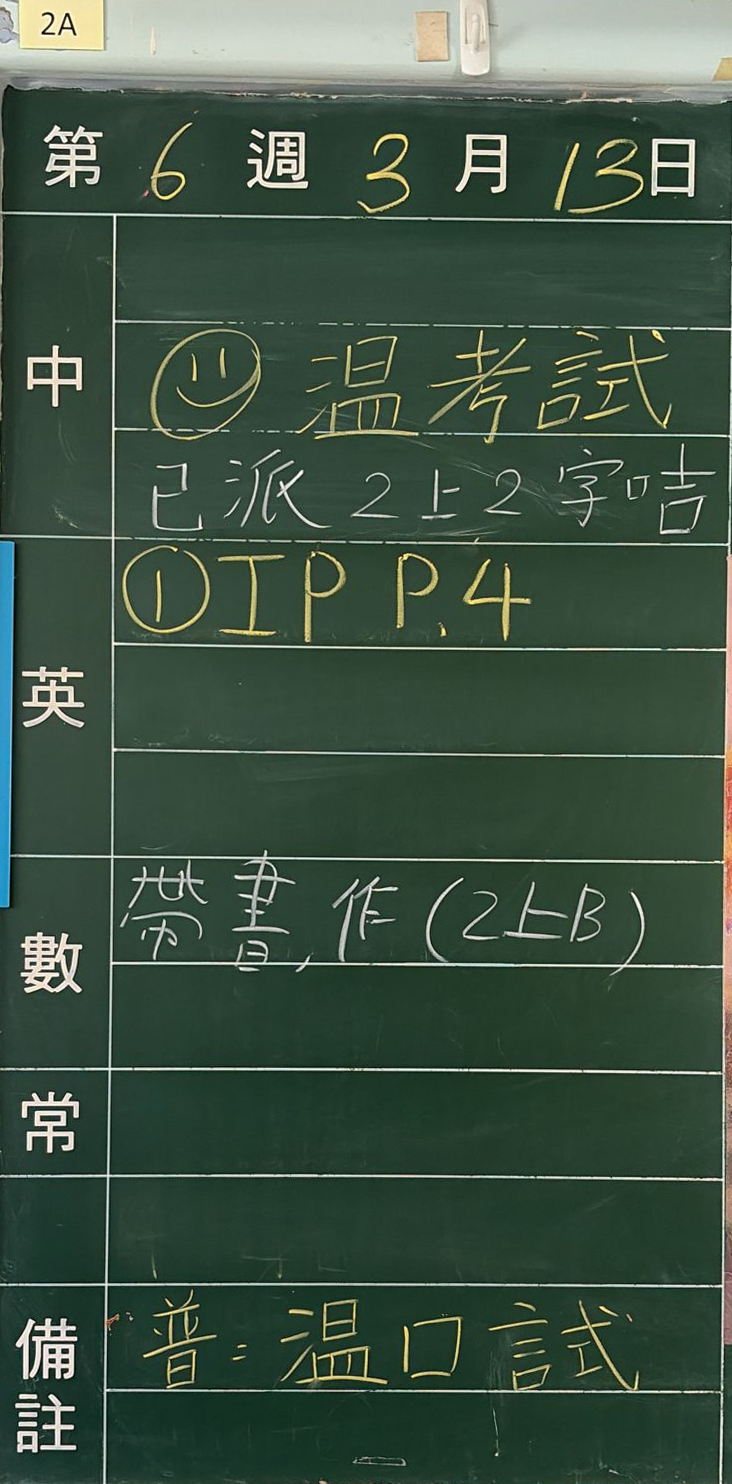 2A
第 6 週 3 月 13 日
中
温考試
已派 2上2 字咭
英
①IP P.4
數
帶書,作(2上B)
常
備註
普：温口試